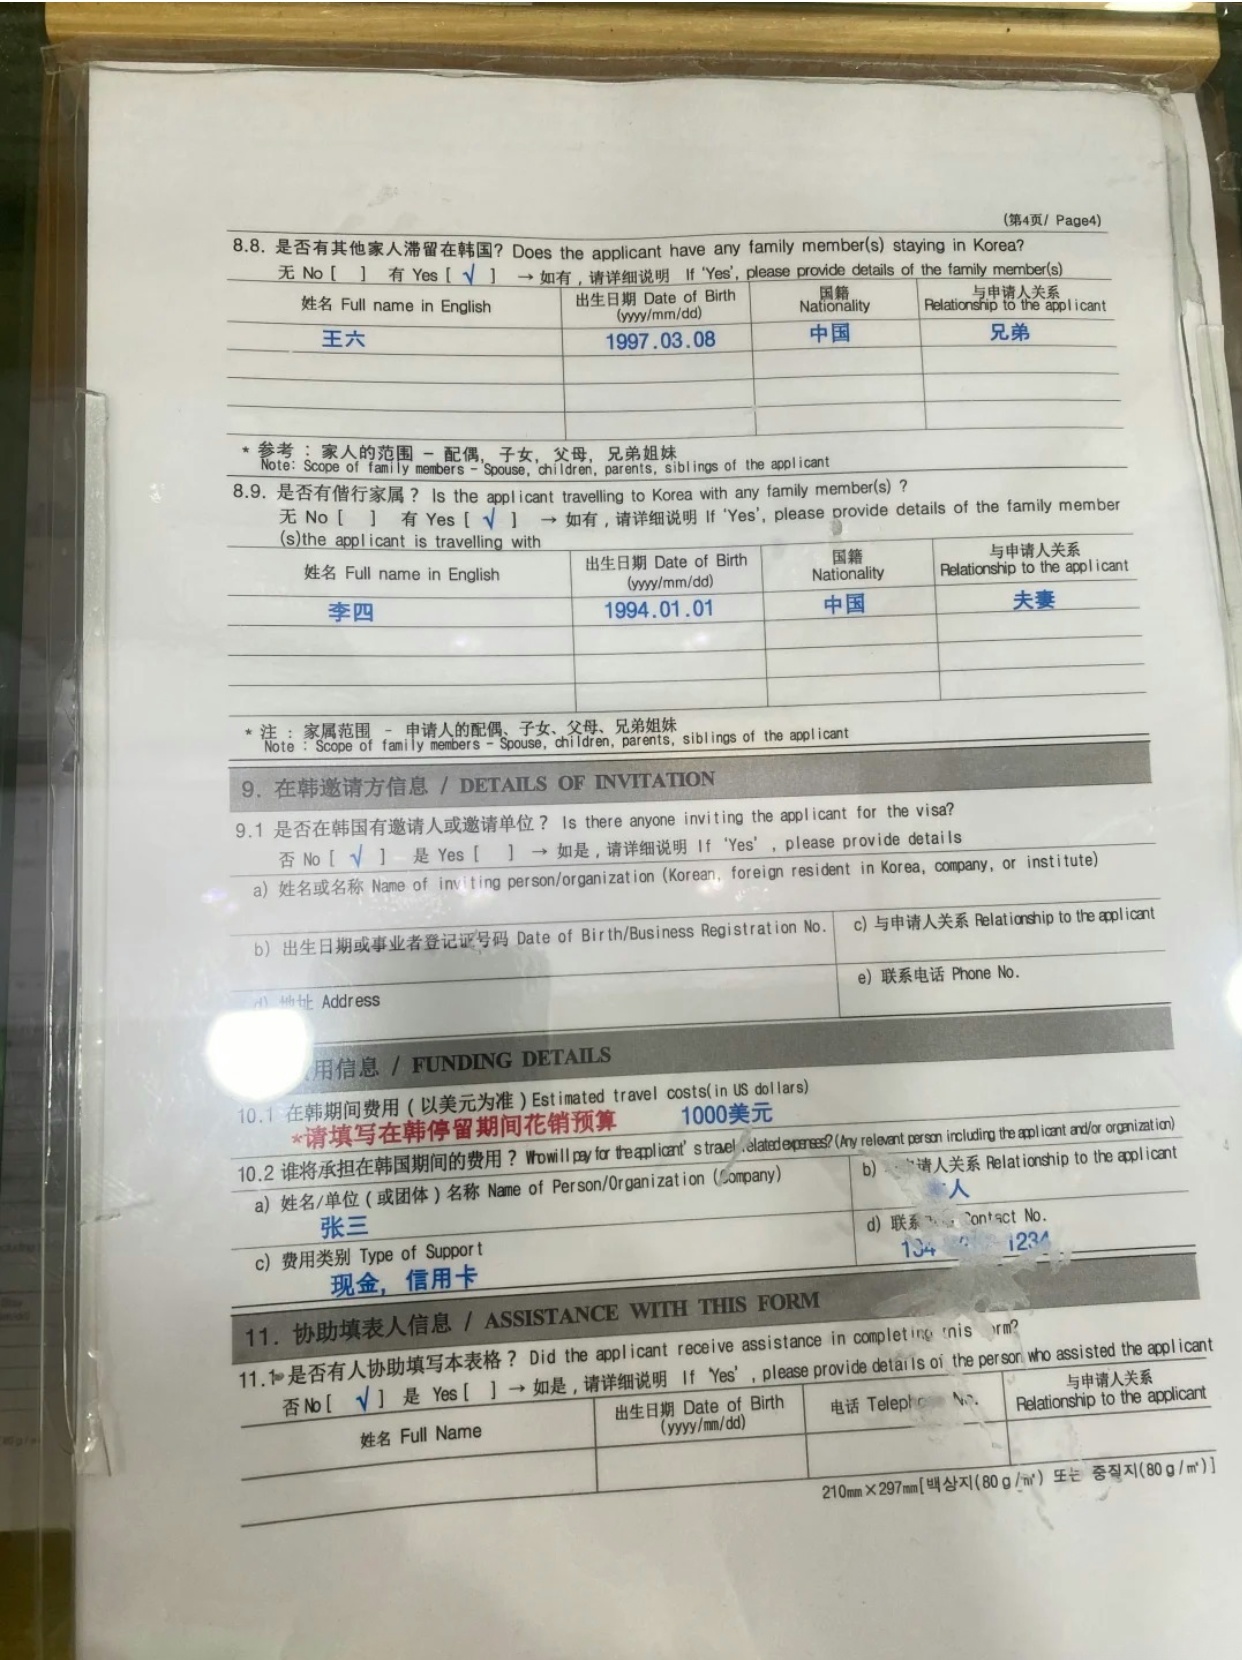 (第4页/ Page4)
8.8. 是否有其他家人滞留在韩国? Does the applicant have any family member(s) staying in Korea?
无 No [ ] 有 Yes [ √ ] → 如有 , 请详细说明 If ‘Yes’, please provide details of the family member(s)
姓名 Full name in English 出生日期 Date of Birth (yyyy/mm/dd) 国籍 Nationality 与申请人关系 Relationship to the applicant
王六 1997.03.08 中国 兄弟
* 参考 : 家人的范围 - 配偶, 子女, 父母, 兄弟姐妹
Note: Scope of family members - Spouse, children, parents, siblings of the applicant
8.9. 是否有偕行家属 ? Is the applicant travelling to Korea with any family member(s) ?
无 No [ ] 有 Yes [ √ ] → 如有 , 请详细说明 If ‘Yes’, please provide details of the family member
(s)the applicant is travelling with
姓名 Full name in English 出生日期 Date of Birth (yyyy/mm/dd) 国籍 Nationality 与申请人关系 Relationship to the applicant
李四 1994.01.01 中国 夫妻
* 注 : 家属范围 - 申请人的配偶、子女、父母、兄弟姐妹
Note : Scope of family members - Spouse, children, parents, siblings of the applicant
9. 在韩邀请方信息 / DETAILS OF INVITATION
9.1 是否在韩国有邀请人或邀请单位 ? Is there anyone inviting the applicant for the visa?
否 No [ √ ] 是 Yes [ ] → 如是 , 请详细说明 If ‘Yes’ , please provide details
a) 姓名或名称 Name of inviting person/organization (Korean, foreign resident in Korea, company, or institute)
b) 出生日期或事业者登记证号码 Date of Birth/Business Registration No. c) 与申请人关系 Relationship to the applicant
d) 地址 Address e) 联系电话 Phone No.
用信息 / FUNDING DETAILS
10.1 在韩期间费用 ( 以美元为准 ) Estimated travel costs(in US dollars)
*请填写在韩停留期间花销预算 1000美元
10.2 谁将承担在韩国期间的费用 ? Who will pay for the applicant’ s travel-related expenses? (Any relevant person including the applicant and/or organization)
a) 姓名/单位 ( 或团体 ) 名称 Name of Person/Organization (Company) b) 请人关系 Relationship to the applicant
张三 人
c) 费用类别 Type of Support d) 联系 Contact No.
现金, 信用卡 134 1234
11. 协助填表人信息 / ASSISTANCE WITH THIS FORM
11.1 是否有人协助填写本表格 ? Did the applicant receive assistance in completing this form?
否 No [ √ ] 是 Yes [ ] → 如是 , 请详细说明 If ‘Yes’ , please provide details of the person who assisted the applicant
姓名 Full Name 出生日期 Date of Birth (yyyy/mm/dd) 电话 Telephone No. 与申请人关系 Relationship to the applicant
210mm×297mm[백상지(80ｇ/㎡) 또는 중질지(80ｇ/㎡)]